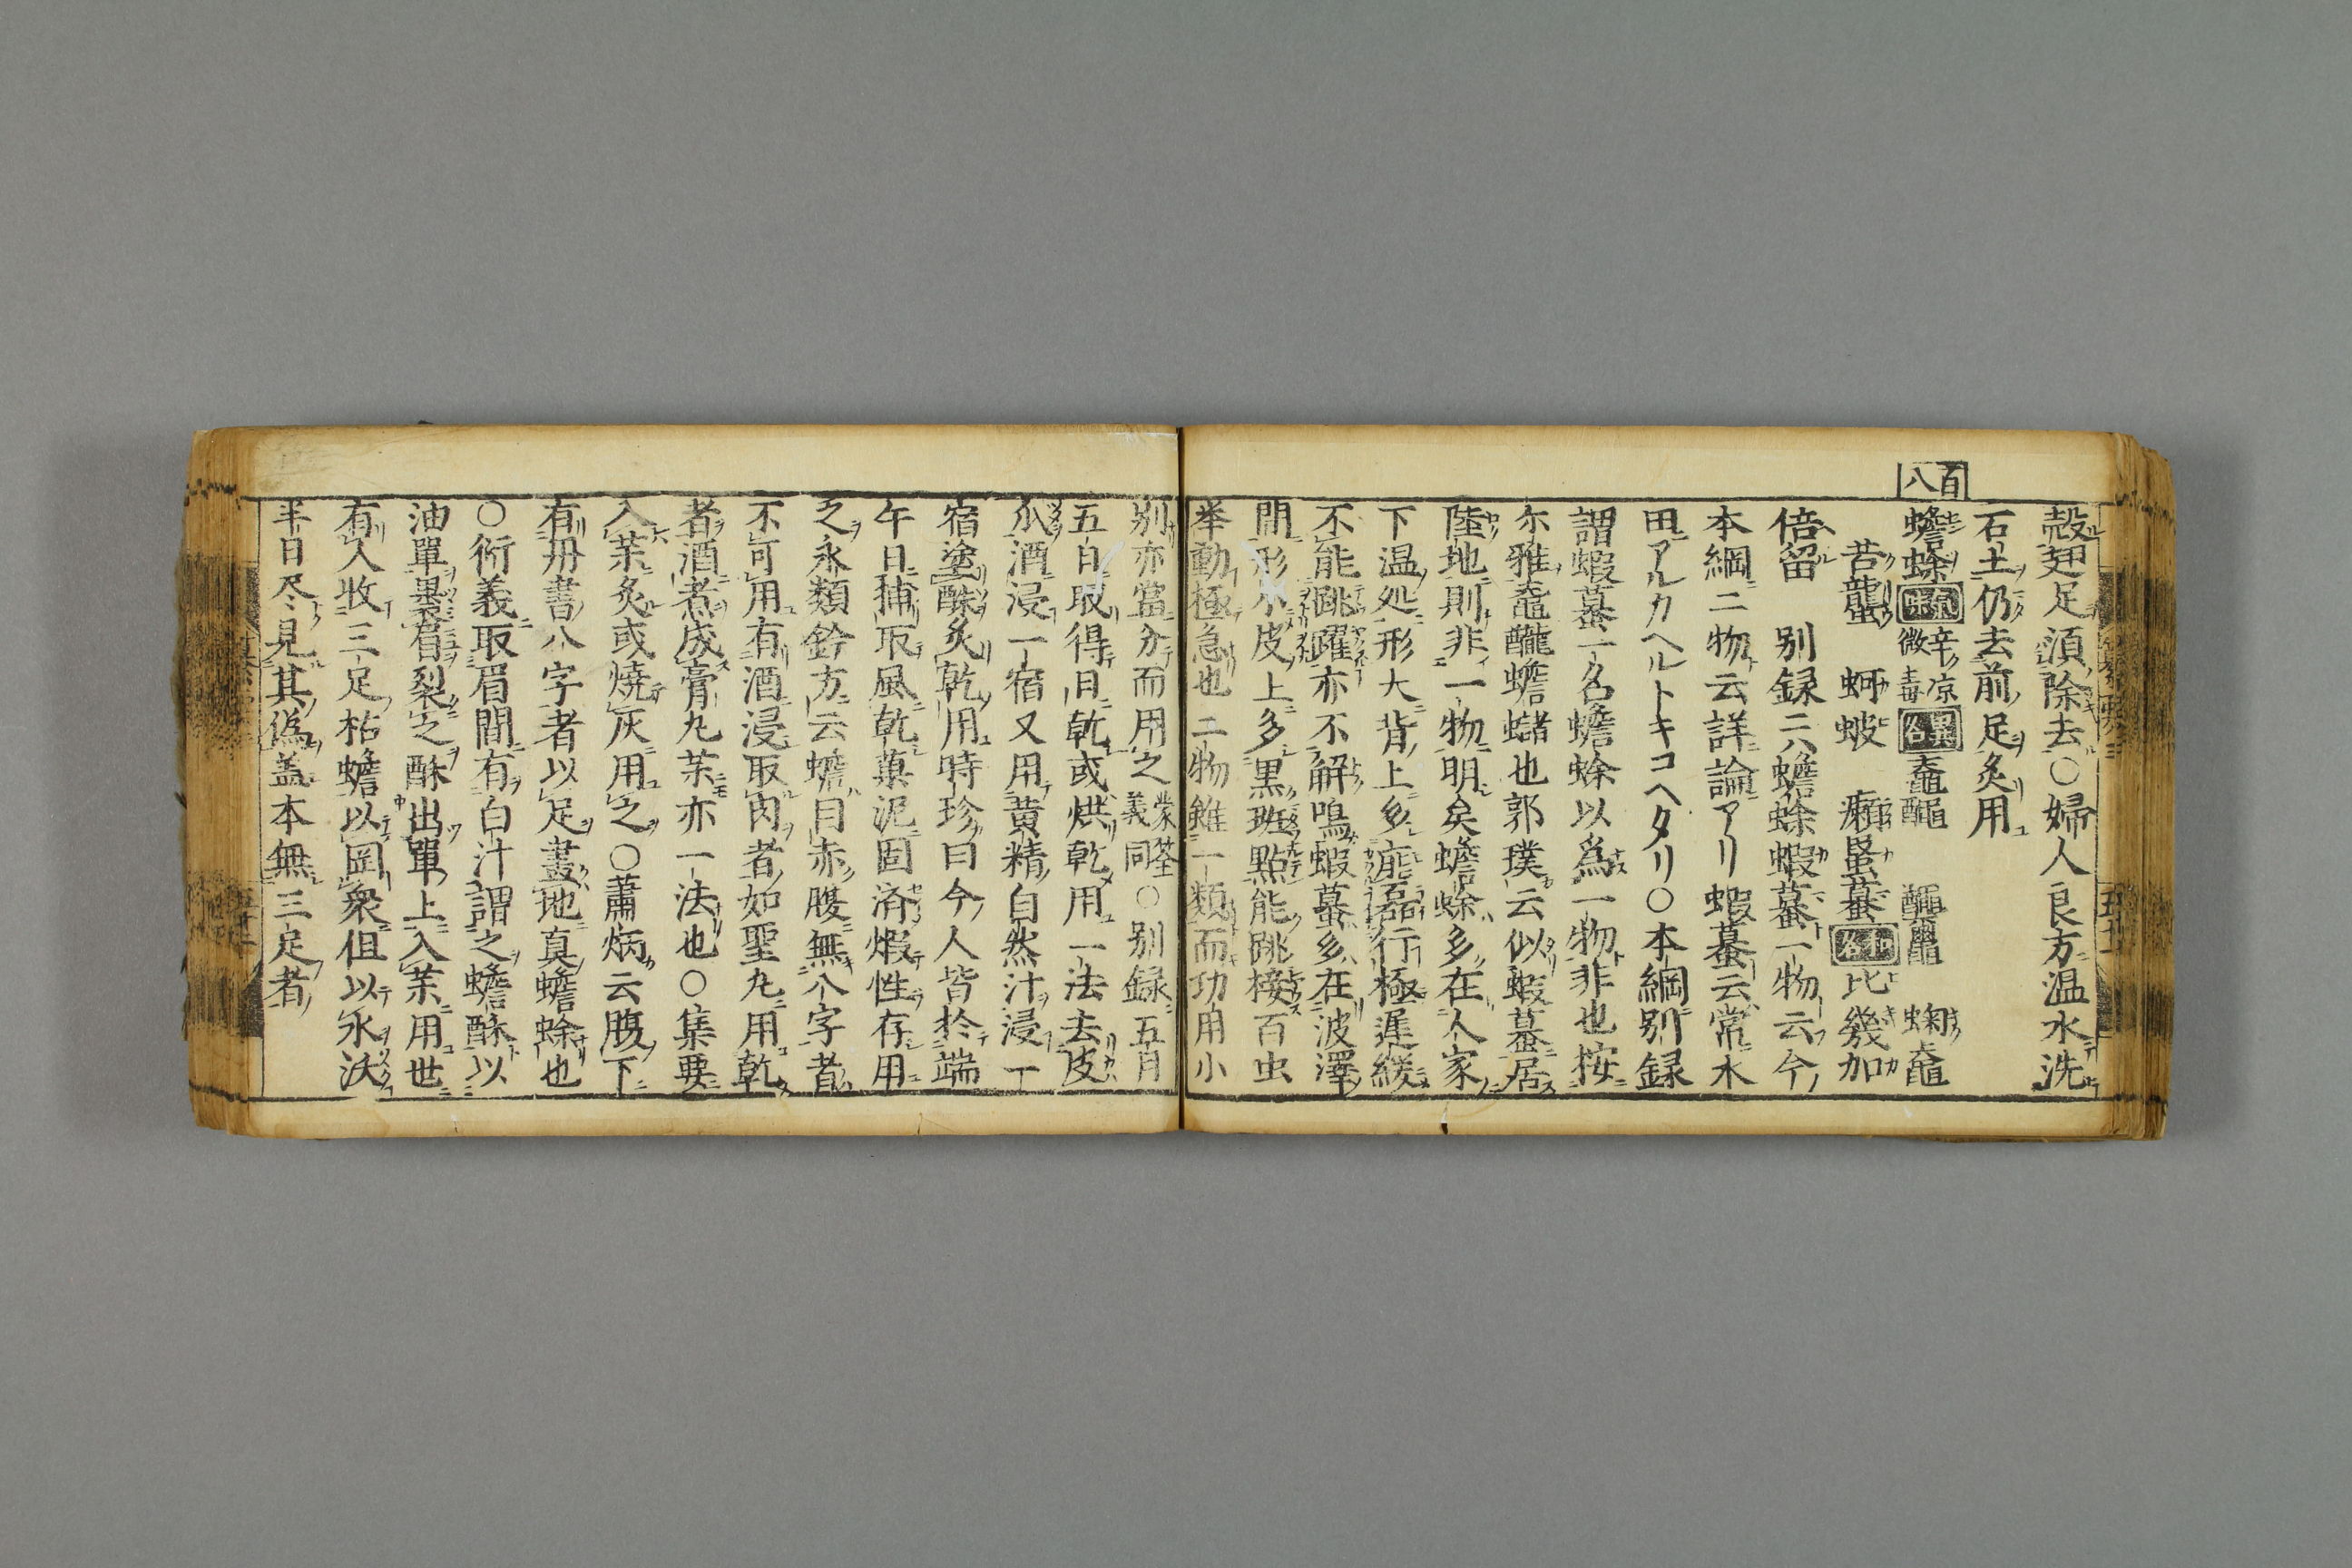 百八
殼翅足須除去○婦人良方温水洗
石土仍去前足炙用
蟾蜍 辛凉微毒 鼁𪓰 蝈鼁
苦蠪 蚵蚾 癩蝦蟇 比幾加
倍留 別録ニハ蟾蜍蝦蟇一物ト云今
本綱ニ二物ト云詳論アリ蝦蟇云常ニ水
田アルカヘルトキコヘタリ○本綱別録
謂蝦蟇一名蟾蜍以爲一物非也按
尓雅鼁𪓰蟾蠩也郭璞云似蝦蟇居
陸地則非一物明矣蟾蜍多在人家
下温処形大背上多痱磊行極遲緩
不能跳躍亦不解鳴蝦蟇多在波澤
間形小皮上多黒斑點能跳接百虫
举動極急也二物雖一類而功用小
別亦當分而用之 蒙筌義同 ○別録五月
五日取得日乾或烘乾用一法去皮
爪酒浸一宿又用黄精自然汁浸一
宿塗酥炙乾用時珍曰今人皆於端
午日捕取風乾菓泥固済煆性存用
之永類鈐方云蟾目赤腹無八字者
不可用有酒浸取肉者如聖丸用乾
者酒煮成膏丸茉亦一法也○集要
入茉炙或焼灰用之○蕭炳云腹下
有丹書八字者以足畫地真蟾蜍也
○衍義取眉間有白汁謂之蟾酥以
油單裹眉裂之酥出單上入茉用世
有人收三足枯蟾以罔衆但以水沃
半日尽見其偽盖本無三足者